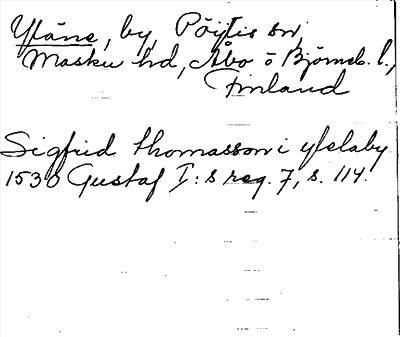 Yläne, by, Pöytis sn,
Masku hd, Åbo o Björneb. l.,
Finland
Sigfrid Thomasson i yleläby
1530 Gustaf I:s reg. 7, s. 114.